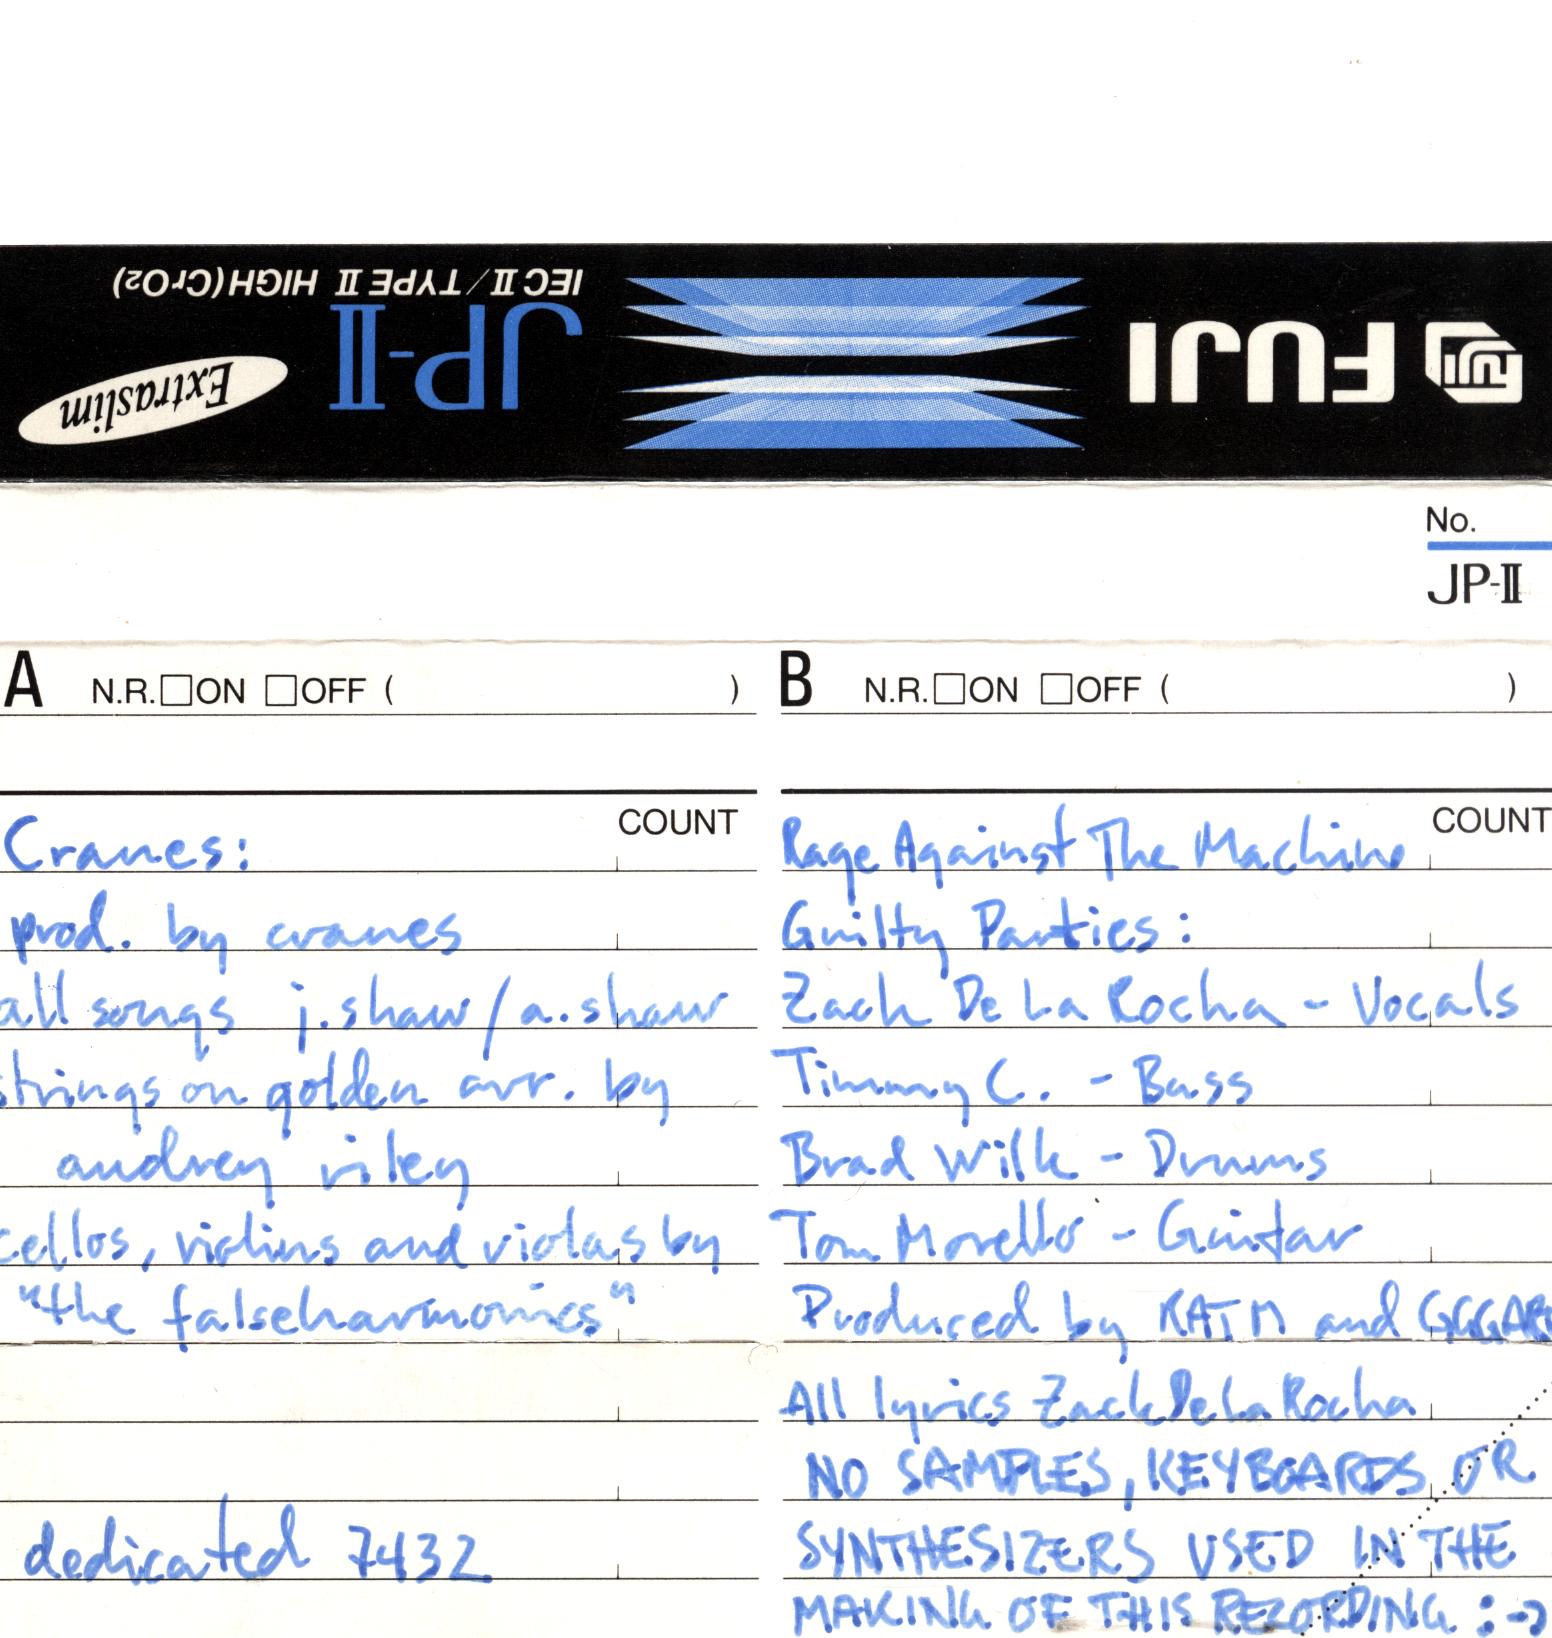 IEC II/TYPE II HIGH (CrO2)
JP-II
Extraslim
FUJI
FUJI
No.
JP-II
A N.R. ON OFF ( )
COUNT
Cranes:
prod. by cranes
all songs j.shaw/a.shaw
strings on golden arr. by
audrey riley
cellos, violins and violas by
"the falseharmonics"
dedicated 7432
B N.R. ON OFF ( )
COUNT
Rage Against The Machine
Guilty Parties:
Zack De La Rocha - Vocals
Timmy C. - Bass
Brad Wilk - Drums
Tom Morello - Guitar
Produced by RATM and
All lyrics Zack De La Rocha
NO SAMPLES, KEYBOARDS OR
SYNTHESIZERS USED IN THE
MAKING OF THIS RECORDING :-)